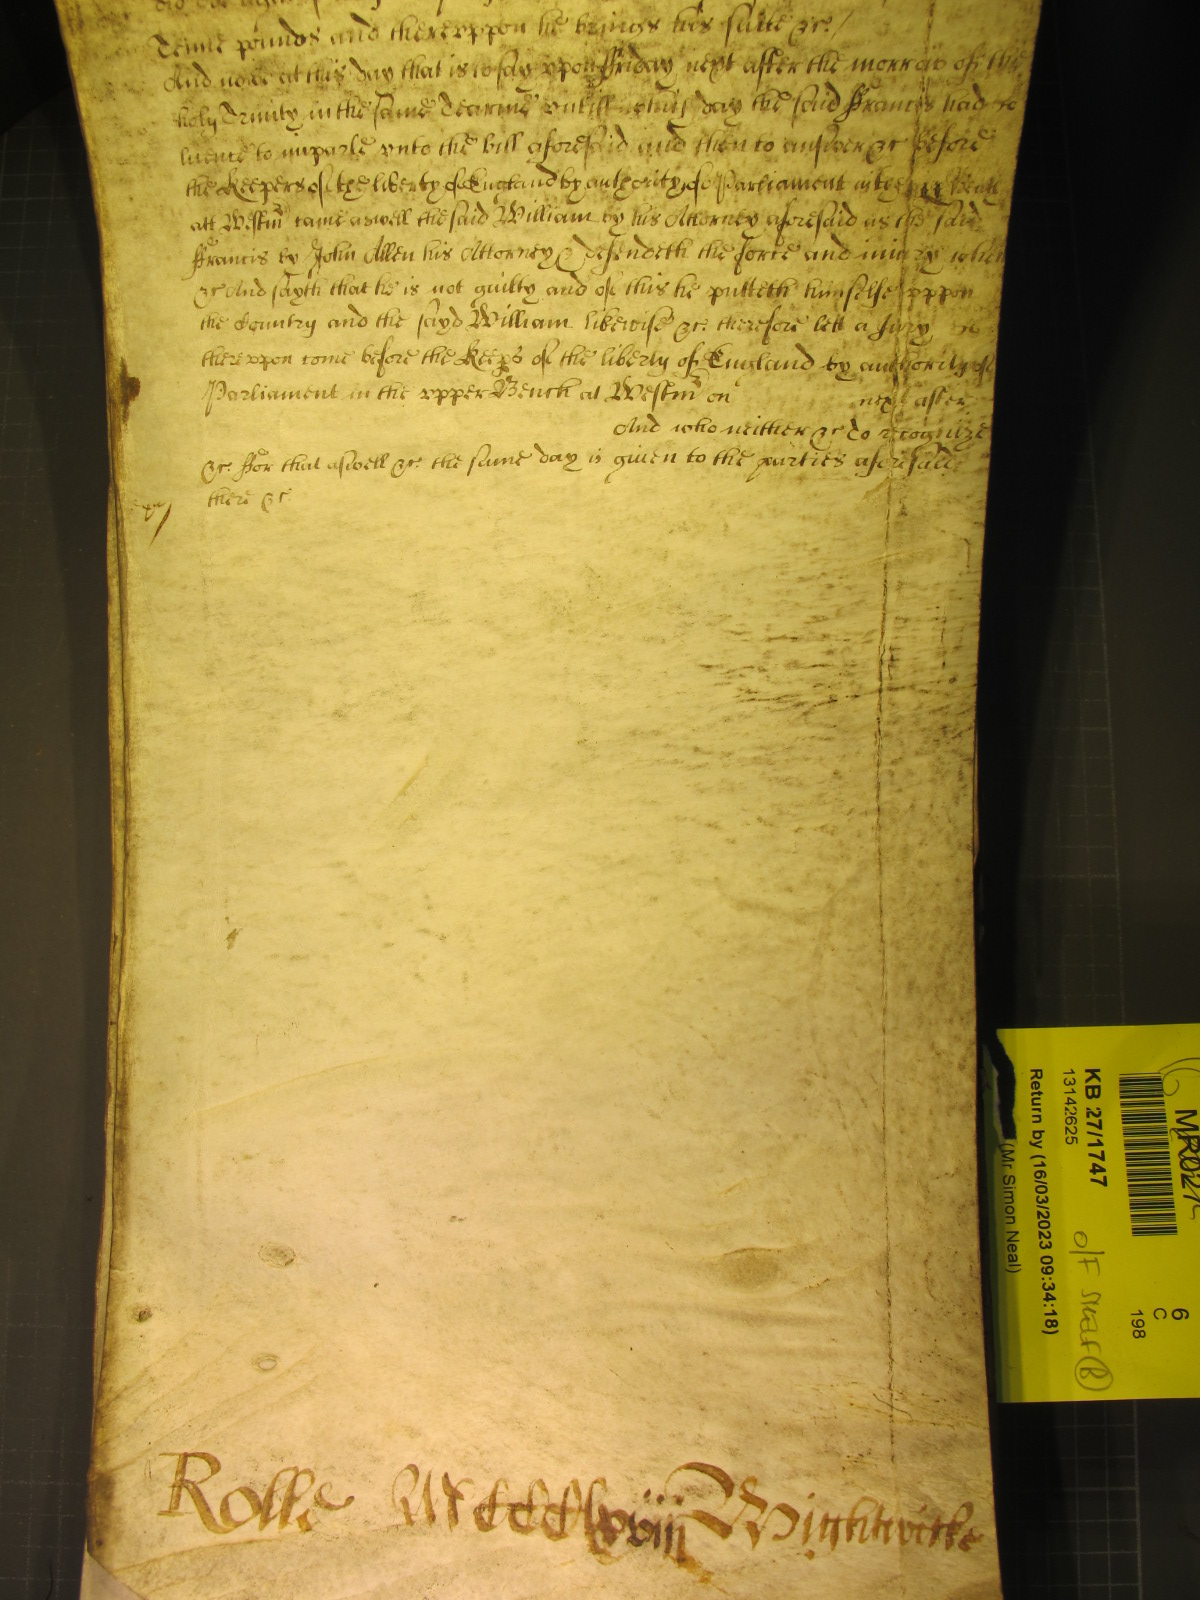 Tenne pounds and thereuppon he brings his suite &c./
And nowe at this day that is to say uppon ffriday next after the morrow of the
holy Trinity in the same Tearme untill which day the said ffrancis had
licence to imparle unto the bill aforesaid and then to answer &c before
the Keepers of the liberty of England by authority of Parliament in the
att Westmr came aswell the said William by his Attorney aforesaid as the said
ffrancis by John Allen his Attorney & defendeth the force and iniury when
&c And sayth that he is not guilty and of this he putteth himselfe uppon
the Country and the sayd William likewise &c. therefore lett a Jury
thereuppon come before the Keeps of the liberty of England by authority of
Parliament in the upper Bench at Westmr on next after
And who neither &c to recognize
&c ffor that aswell &c. the same day is given to the parties aforesaid
there &c
Rolle Wightwicke
KB 27/1747
13142625
Return by (16/03/2023 09:34:18)
(Mr Simon Neal)
O/F
6
C
198